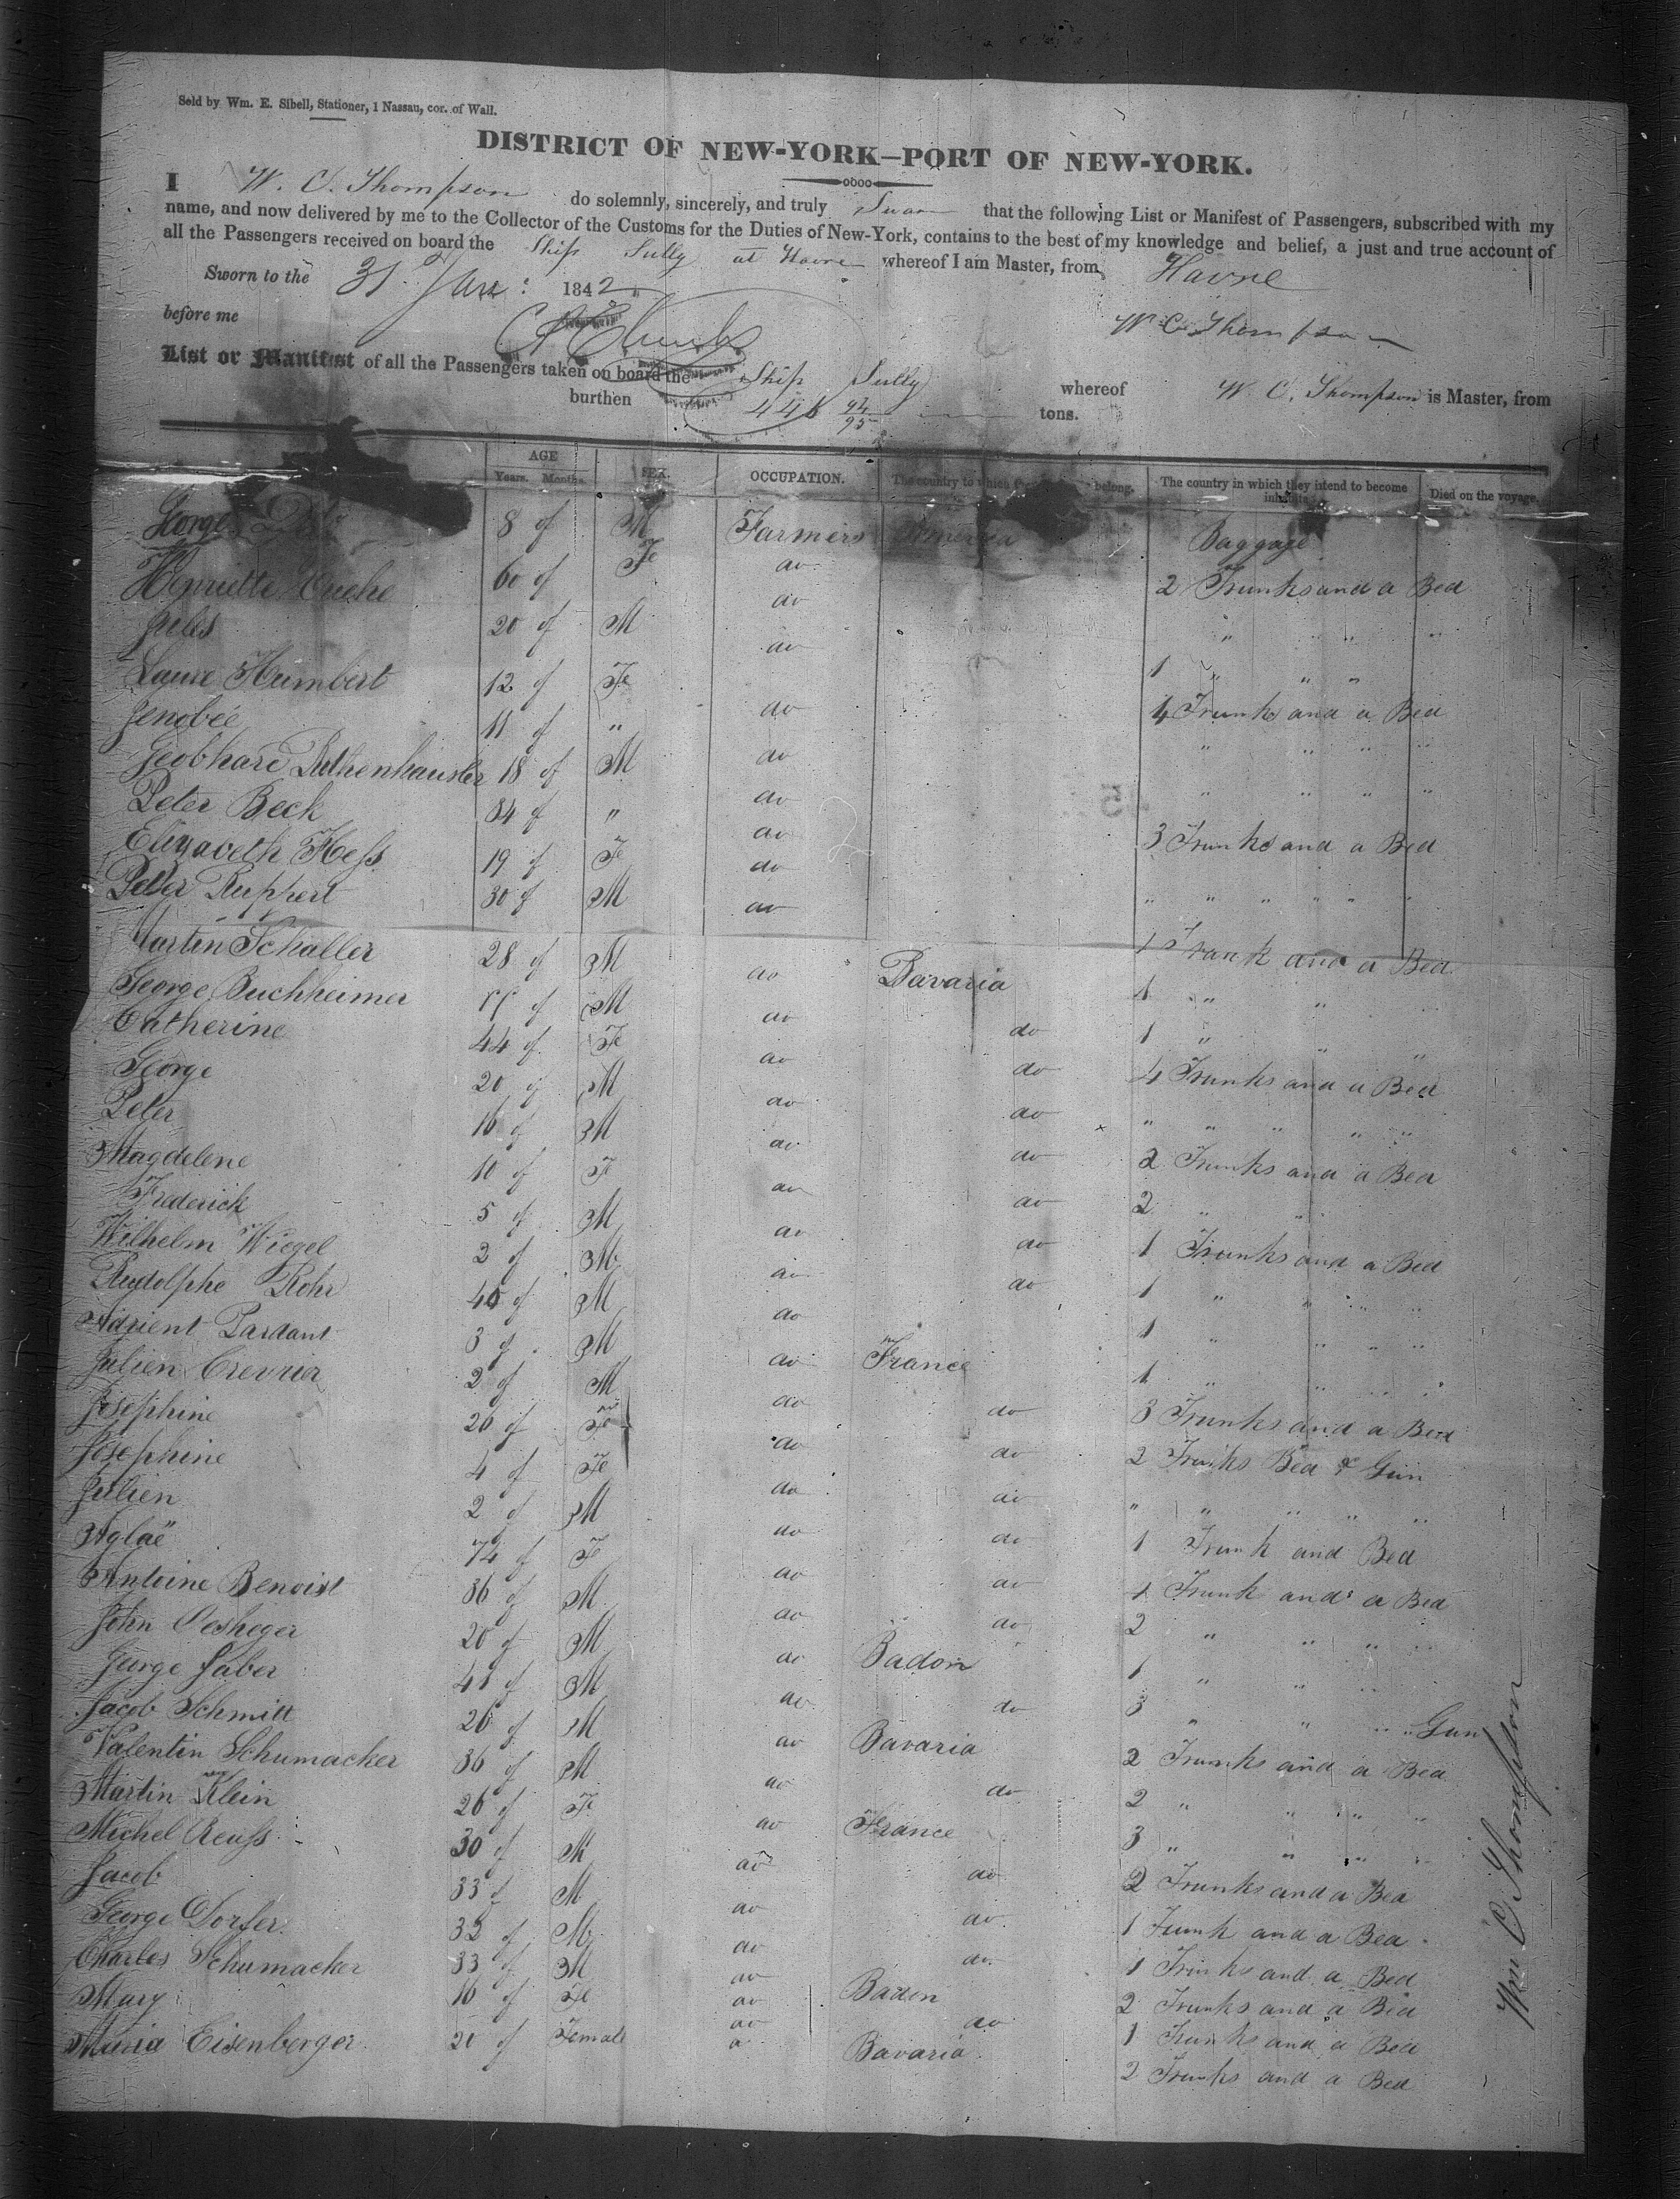 Sold by Wm. E. Sibell, Stationer, 1 Nassau, cor. of Wall.
DISTRICT OF NEW-YORK—PORT OF NEW-YORK.
I W. C. Thompson do solemnly, sincerely, and truly Swear that the following List or Manifest of Passengers, subscribed with my
name, and now delivered by me to the Collector of the Customs for the Duties of New-York, contains to the best of my knowledge and belief, a just and true account of
all the Passengers received on board the Ship Sully at Havre whereof I am Master, from Havre
Sworn to the 31 Jan: 1842
before me W C Thompson
List or Manifest of all the Passengers taken on board the Ship Sully whereof W. C. Thompson is Master, from
burthen 446 94/95 tons.
AGE
Years. Months. SEX. OCCUPATION. The country to which belong. The country in which they intend to become inhabitants. Died on the voyage.
Georges 8 of M Farmers America Baggage
Henriette Cuche 60 of Fe do 2 Trunks and a Bed
Jules 20 of M do " " "
Laure Humbert 12 of Fe do 1 " " "
Zenobée 11 of " do 4 Trunks and a Bed
Gebhard 18 of M do " " " "
Peter Beck 34 of " do " " " "
Elizabeth Hess 19 of Fe do 3 Trunks and a Bed
Peter Ruppert 30 of M do " " " " " "
Martin Schaller 28 of M do Bavaria 1 Trunk and a Bed
George Buchheimer of M do do 1 " "
Catherine 44 of Fe do do 1 " " "
George 20 of M do do 4 Trunks and a Bed
Peter 16 of M do do " " " " "
Magdelene 10 of F do do 2 Trunks and a Bed
Frederick 5 of M do do 2 " "
Wilhelm Wiegel 2 of M do do 1 Trunks and a Bed
Rudolphe Rohr 40 of M do 1 " " " "
Adrient Pardant 3 of M do France 1 " " " "
Julien Crevrier 2 of M do do 1 " " " "
Josephine 26 of Fe do do 3 Trunks and a Bed
Josephine 4 of Fe do do 2 Trunks Bed & Gun
Julien 2 of M do do " " " " "
Aglaë 74 of Fe do do 1 Trunk and Bed
Antoine Benoist 36 of M do do 1 Trunk and a Bed
John Oesheger 20 of M do Badon 2 " " " "
George Faber 41 of M do do 1 " " "
Jacob Schmitt 26 of M do Bavaria 3 " " " " Gun
Valentin Schumacker 36 of M do do 2 Trunks and a Bed
Martin Klein 26 of Fe do France 2 " " " "
Michel Reuss 30 of M do do 3 " " " "
Jacob 33 of M do do 2 Trunks and a Bed
George Dorfer 32 of M do do 1 Trunk and a Bed
Charles Schumacker 33 of M do Baden 1 Trunks and a Bed
Mary 16 of Fe do do 2 Trunks and a Bed
Maria Eisenberger 20 of Female do Bavaria 1 Trunks and a Bed
2 Trunks and a Bed
Wm C Thompson